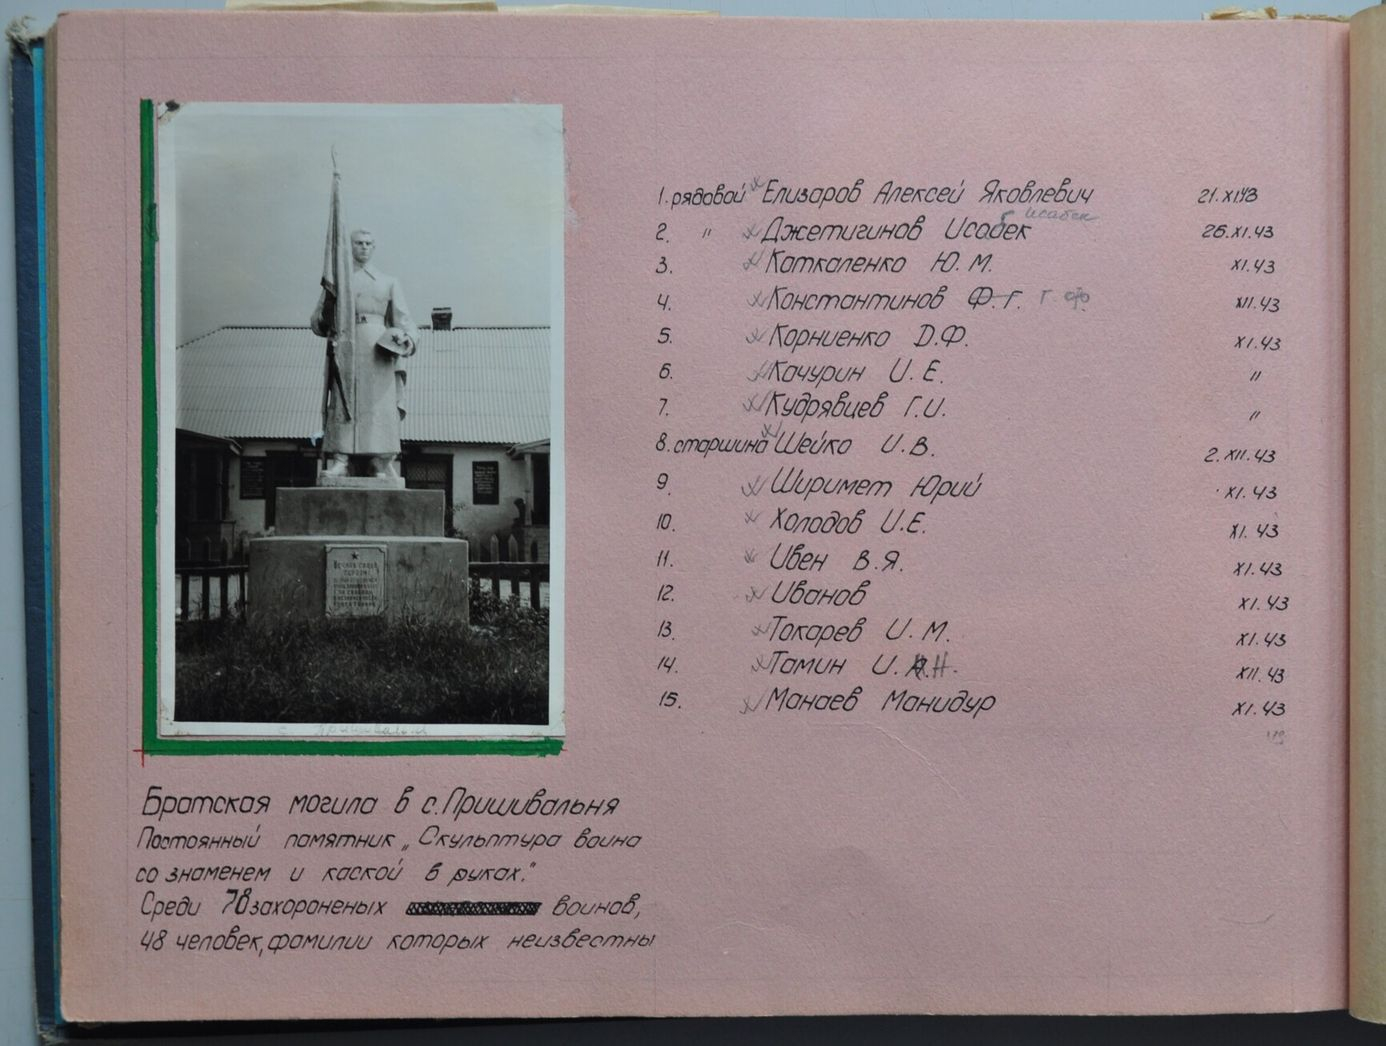 с. Пришивальня
Братская могила в с. Пришивальня
Постоянный памятник „Скульптура воина
со знаменем и каской в руках."
Среди 78 захороненых воинов,
48 человек, фамилии которых неизвестны
1. рядовой Елизаров Алексей Яковлевич 21.XI.43
исабек
2. " Джетигинов Исабек 26.XI.43
3. Каткаленко Ю. М. XI.43
4. Константинов Ф. Г. Г. Ф. XII.43
5. Корниенко Д.Ф. XI.43
6. Качурин И. Е. "
7. Кудрявцев Г.И. "
8. старшина Шейко И. В. 2.XII.43
9. Ширимет Юрий XI.43
10. Холодов И.Е. XI.43
11. Ивен В.Я. XI.43
12. Иванов XI.43
13. Токарев И. М. XI.43
14. Тамин И. Н. XII.43
15. Манаев Манидур XI.43